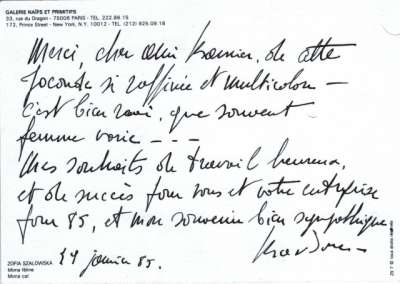 GALERIE NAÏFS ET PRIMITIFS
33, rue du Dragon - 75006 PARIS - TEL. 222.86.15
172, Prince Street - New York, N.Y. 10012 - TEL. (212) 925.09.18
Merci, cher ami de cette
Joconde si raffinée et multicolore —
C'est bien vrai, que souvent
femme varie - - -
Mes souhaits de travail heureux,
et de succès pour vous et votre entreprise
pour 85, et mon souvenir bien sympathique
ZOFIA SZALOWSKA
Mona
Mona cat
14 janvier 85.